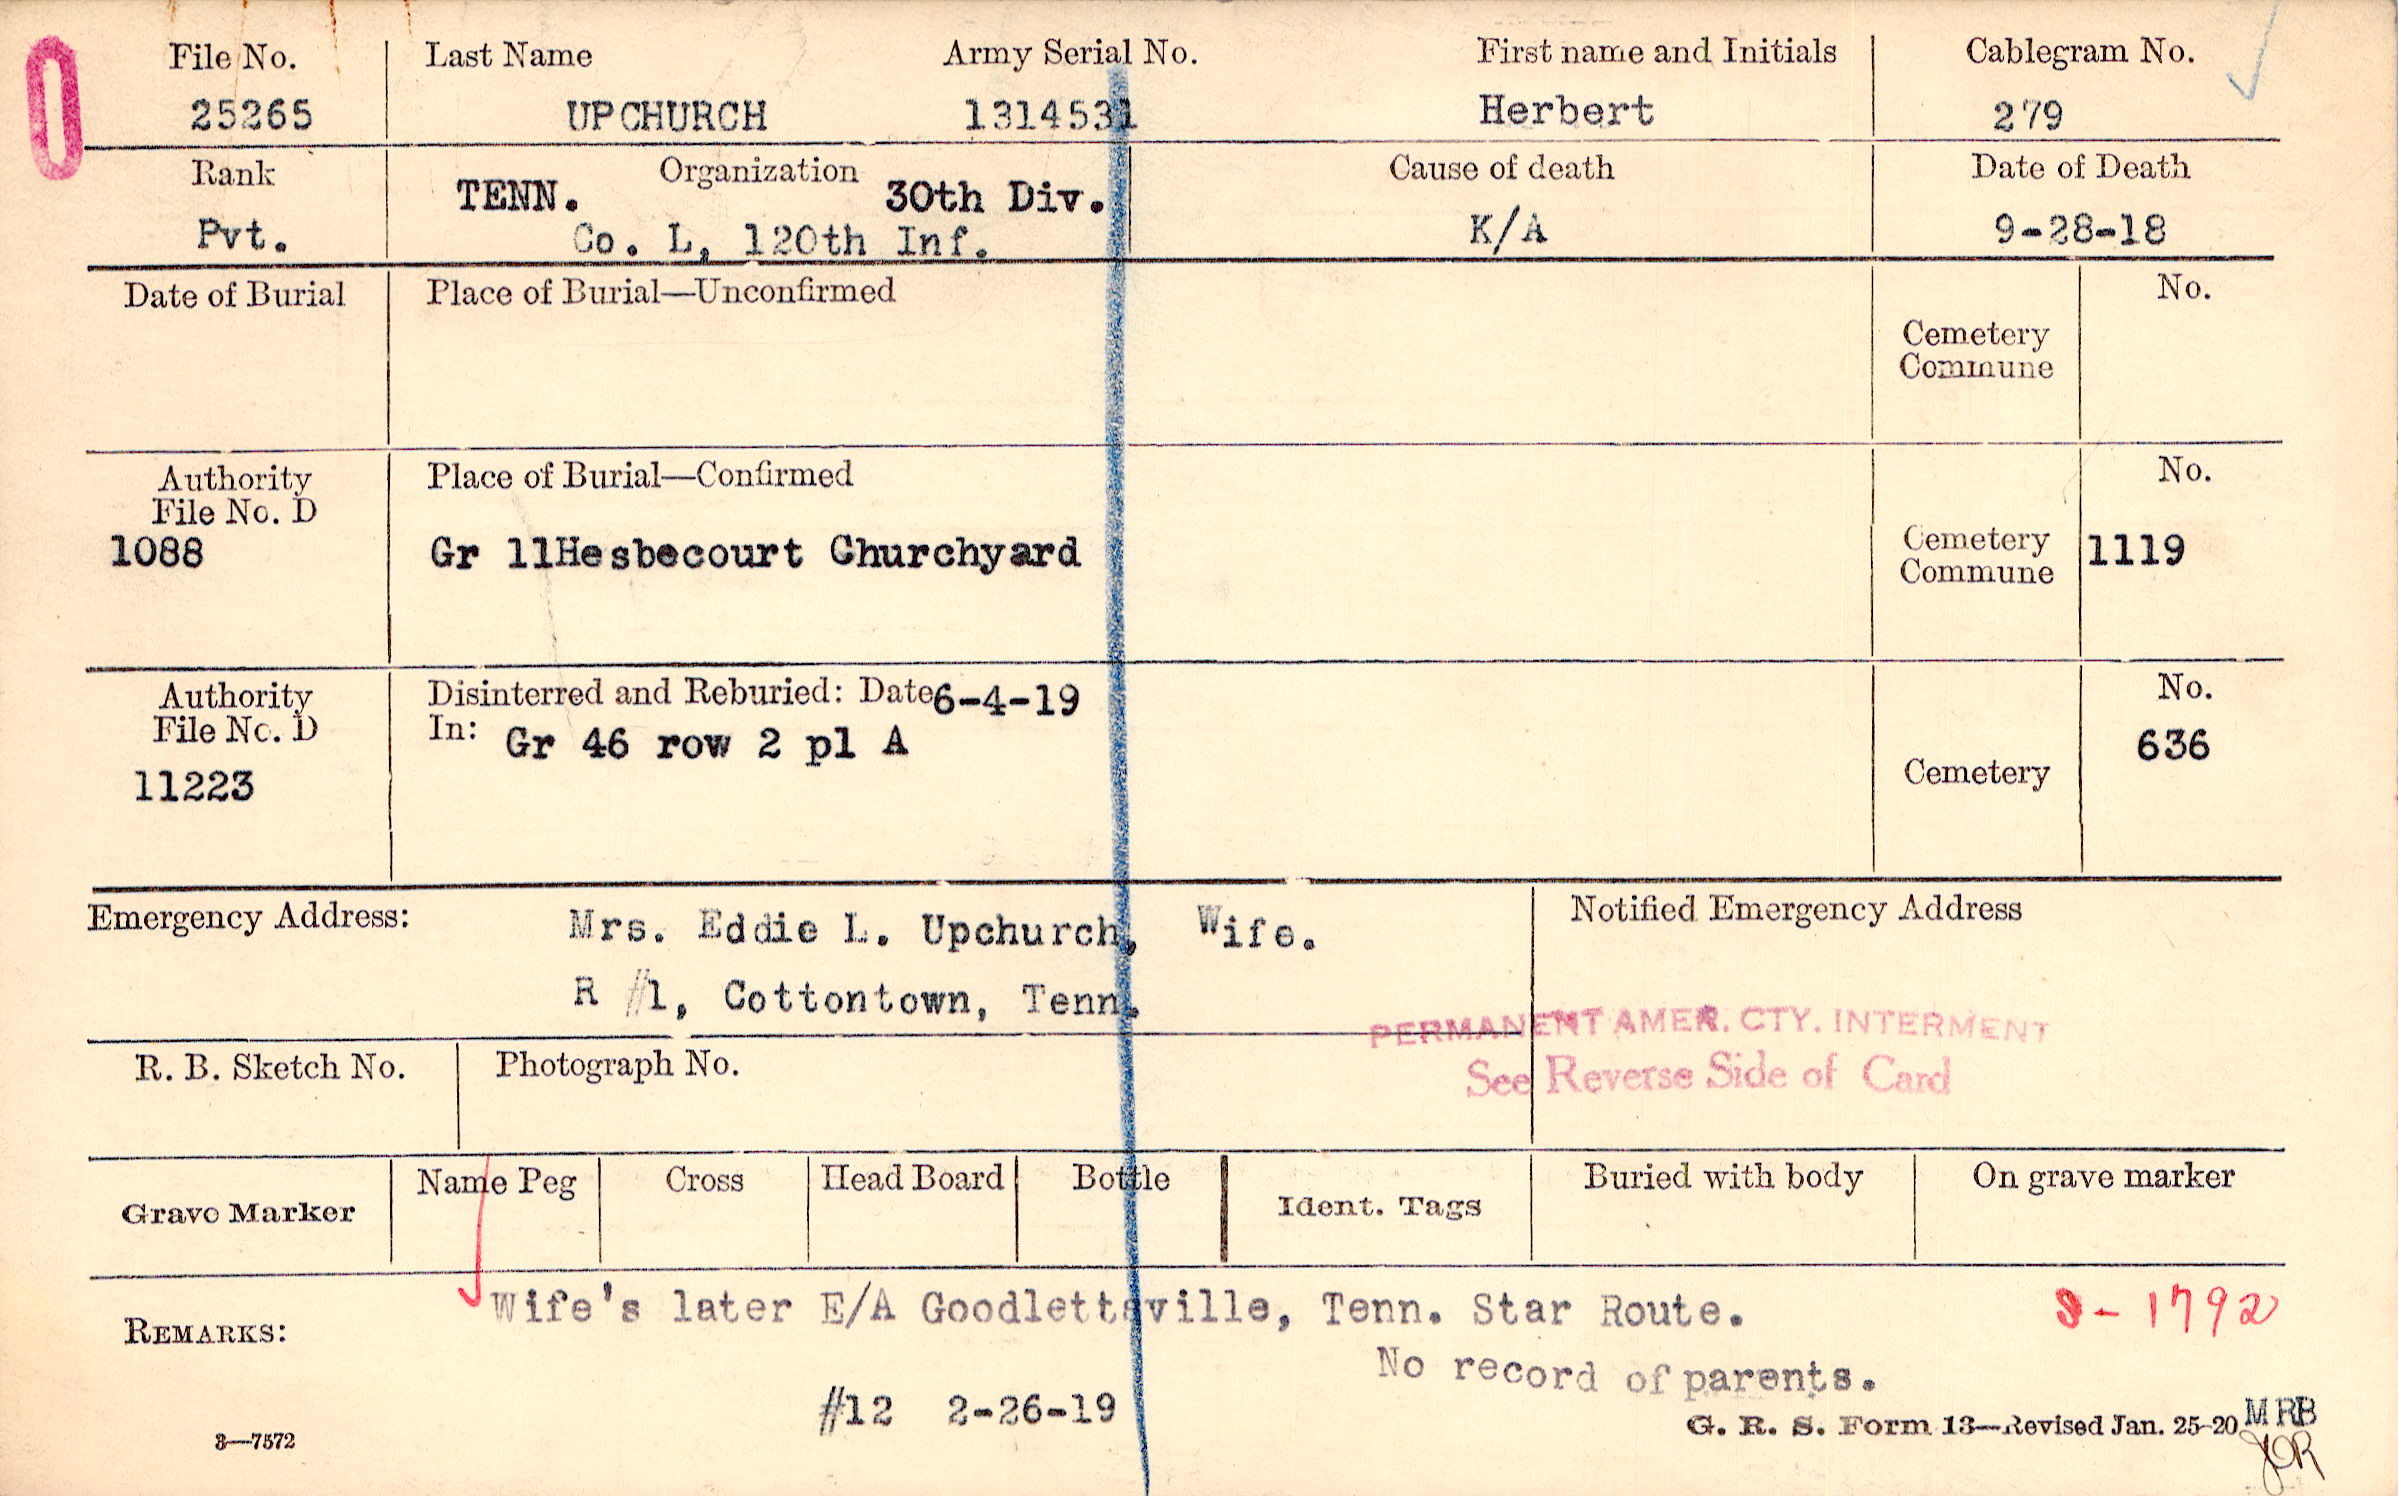 File No. Last Name Army Serial No. First name and Initials Cablegram No.
25265 UPCHURCH 1314531 Herbert 279
Rank Organization Cause of death Date of Death
TENN. 30th Div.
Pvt. Co. L, 120th Inf. K/A 9-28-18
Date of Burial Place of Burial—Unconfirmed No.
Cemetery
Commune
Authority Place of Burial—Confirmed No.
File No. D
1088 Gr 11Hesbecourt Churchyard Cemetery 1119
Commune
Authority Disinterred and Reburied: Date 6-4-19 No.
File No. D In: Gr 46 row 2 pl A 636
11223 Cemetery
Emergency Address: Mrs. Eddie L. Upchurch, Wife. Notified Emergency Address
R #1, Cottontown, Tenn.
PERMANENT AMER. CTY. INTERMENT
R. B. Sketch No. Photograph No. See Reverse Side of Card
Name Peg Cross Head Board Bottle Buried with body On grave marker
Grave Marker Ident. Tags
Wife's later E/A Goodlettsville, Tenn. Star Route. S-1792
REMARKS:
No record of parents.
#12 2-26-19
G. R. S. Form 13—Revised Jan. 25-20 MRB
3—7572
JOR